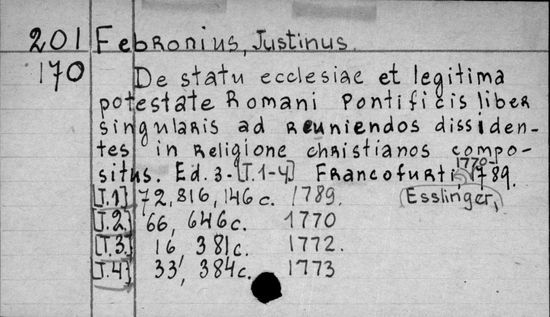 201 Febronius, Justinus.
170 De statu ecclesiae et legitima
potestate Romani Pontificis liber
singularis ad reuniendos dissiden-
tes in religione christianos compo-
situs. Ed. 3-[T.1-4] Francofurti, 1770-1789.
(Esslinger,)
[T.1] 72, 816, 146 c. 1789.
[T.2] 66, 646 c. 1770
[T.3.] 16 381c. 1772.
[T.4] 33, 384c. 1773